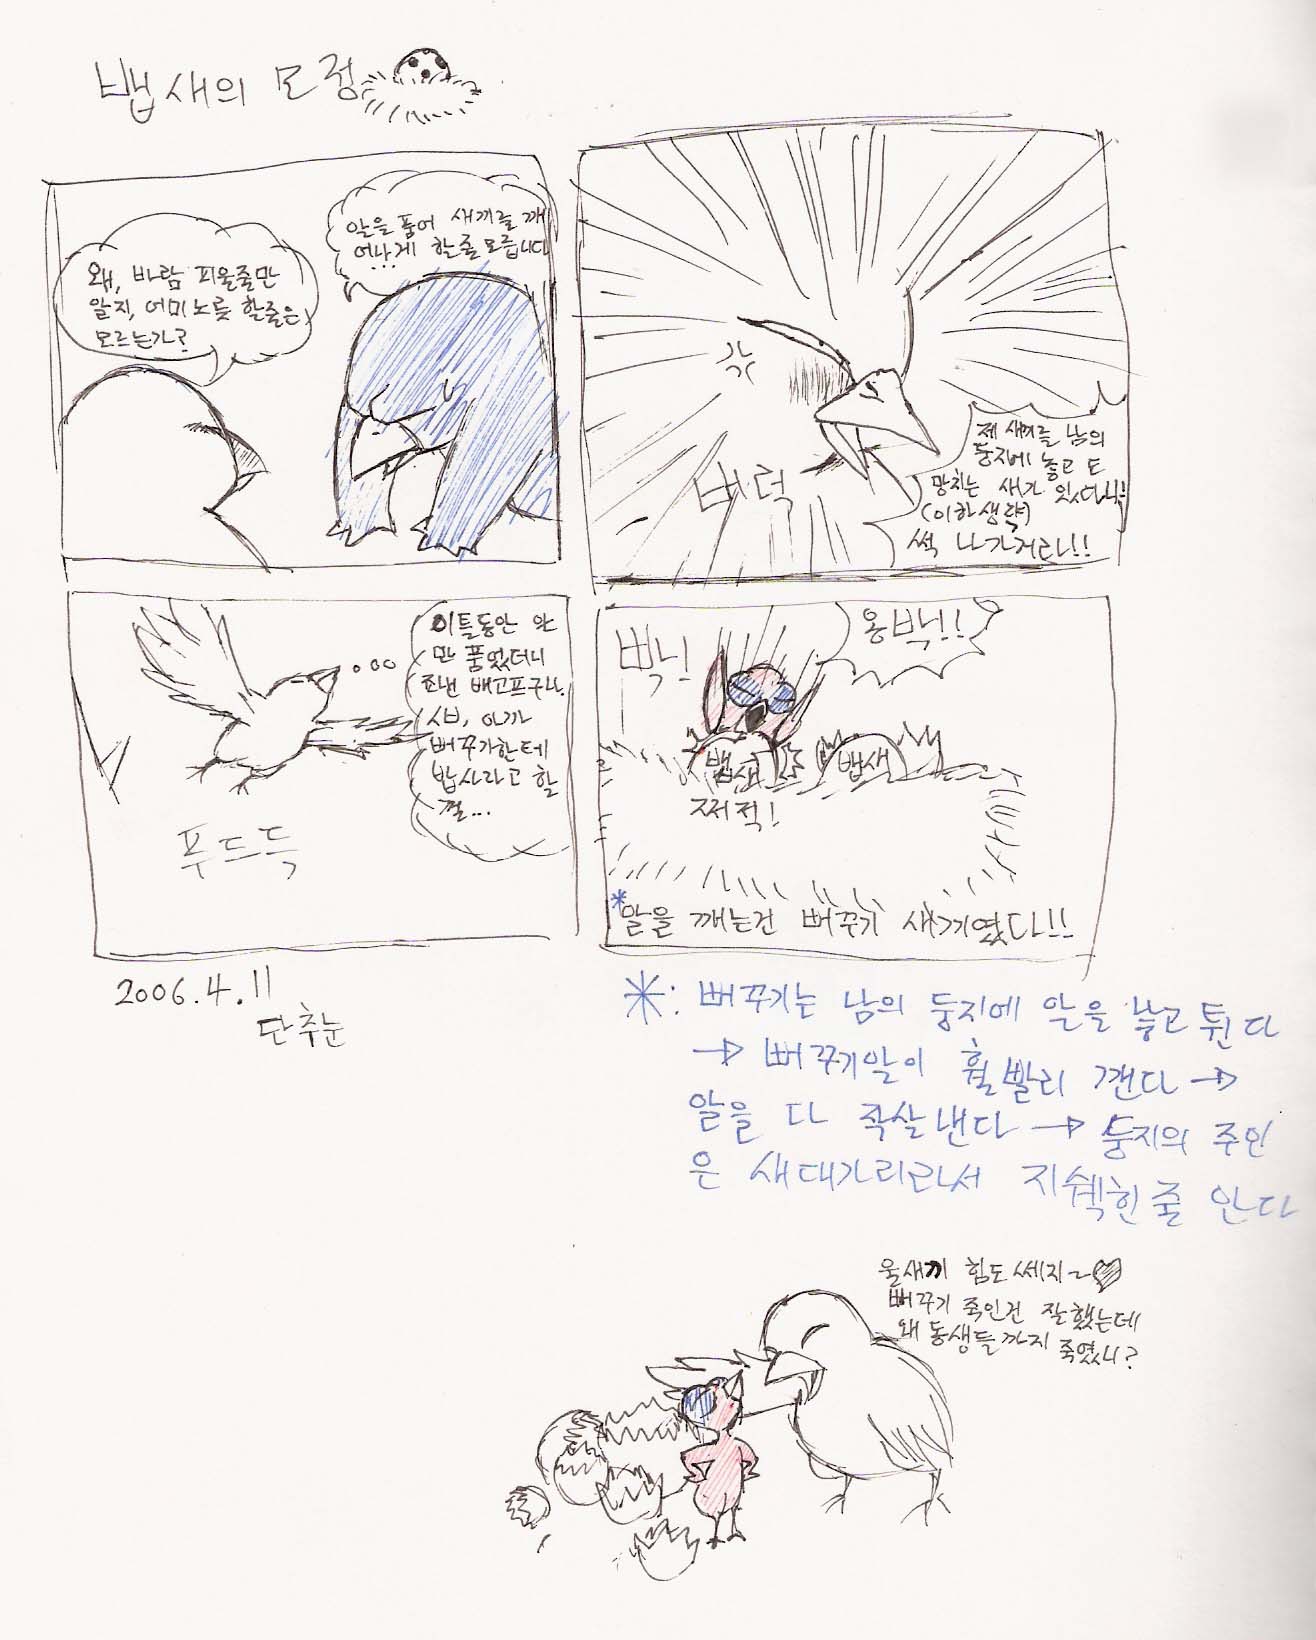 뱁새의 모정
왜, 바람 피울줄만
알지, 어미노릇 할줄은
모르는가?
알을 품어 새끼를 깨
어나게 할줄 모릅니다
...
버럭
제 새끼를 남의
둥지에 놓고 도
망치는 새가 있다니!
(이하생략)
썩 나가거라!!
이틀동안 알
만 품었더니
존낸 배고프구나.
시브, 아까
뻐꾸기한테
밥사라고 할
껄...
푸드득
빡!
용빡!!
뱁새
뱁새
쩌적!
*알을 깨는건 뻐꾸기 새끼였다!!
2006.4.11
단추눈
*: 뻐꾸기는 남의 둥지에 알을 놓고 튄다
→ 뻐꾸기알이 훨 빨리 깬다 →
알을 다 작살낸다 → 둥지의 주인
은 새대가리라서 지쉑힌줄 안다
울새끼 힘도 쎄지~♥
뻐꾸기 죽인건 잘했는데
왜 동생들까지 죽였니?